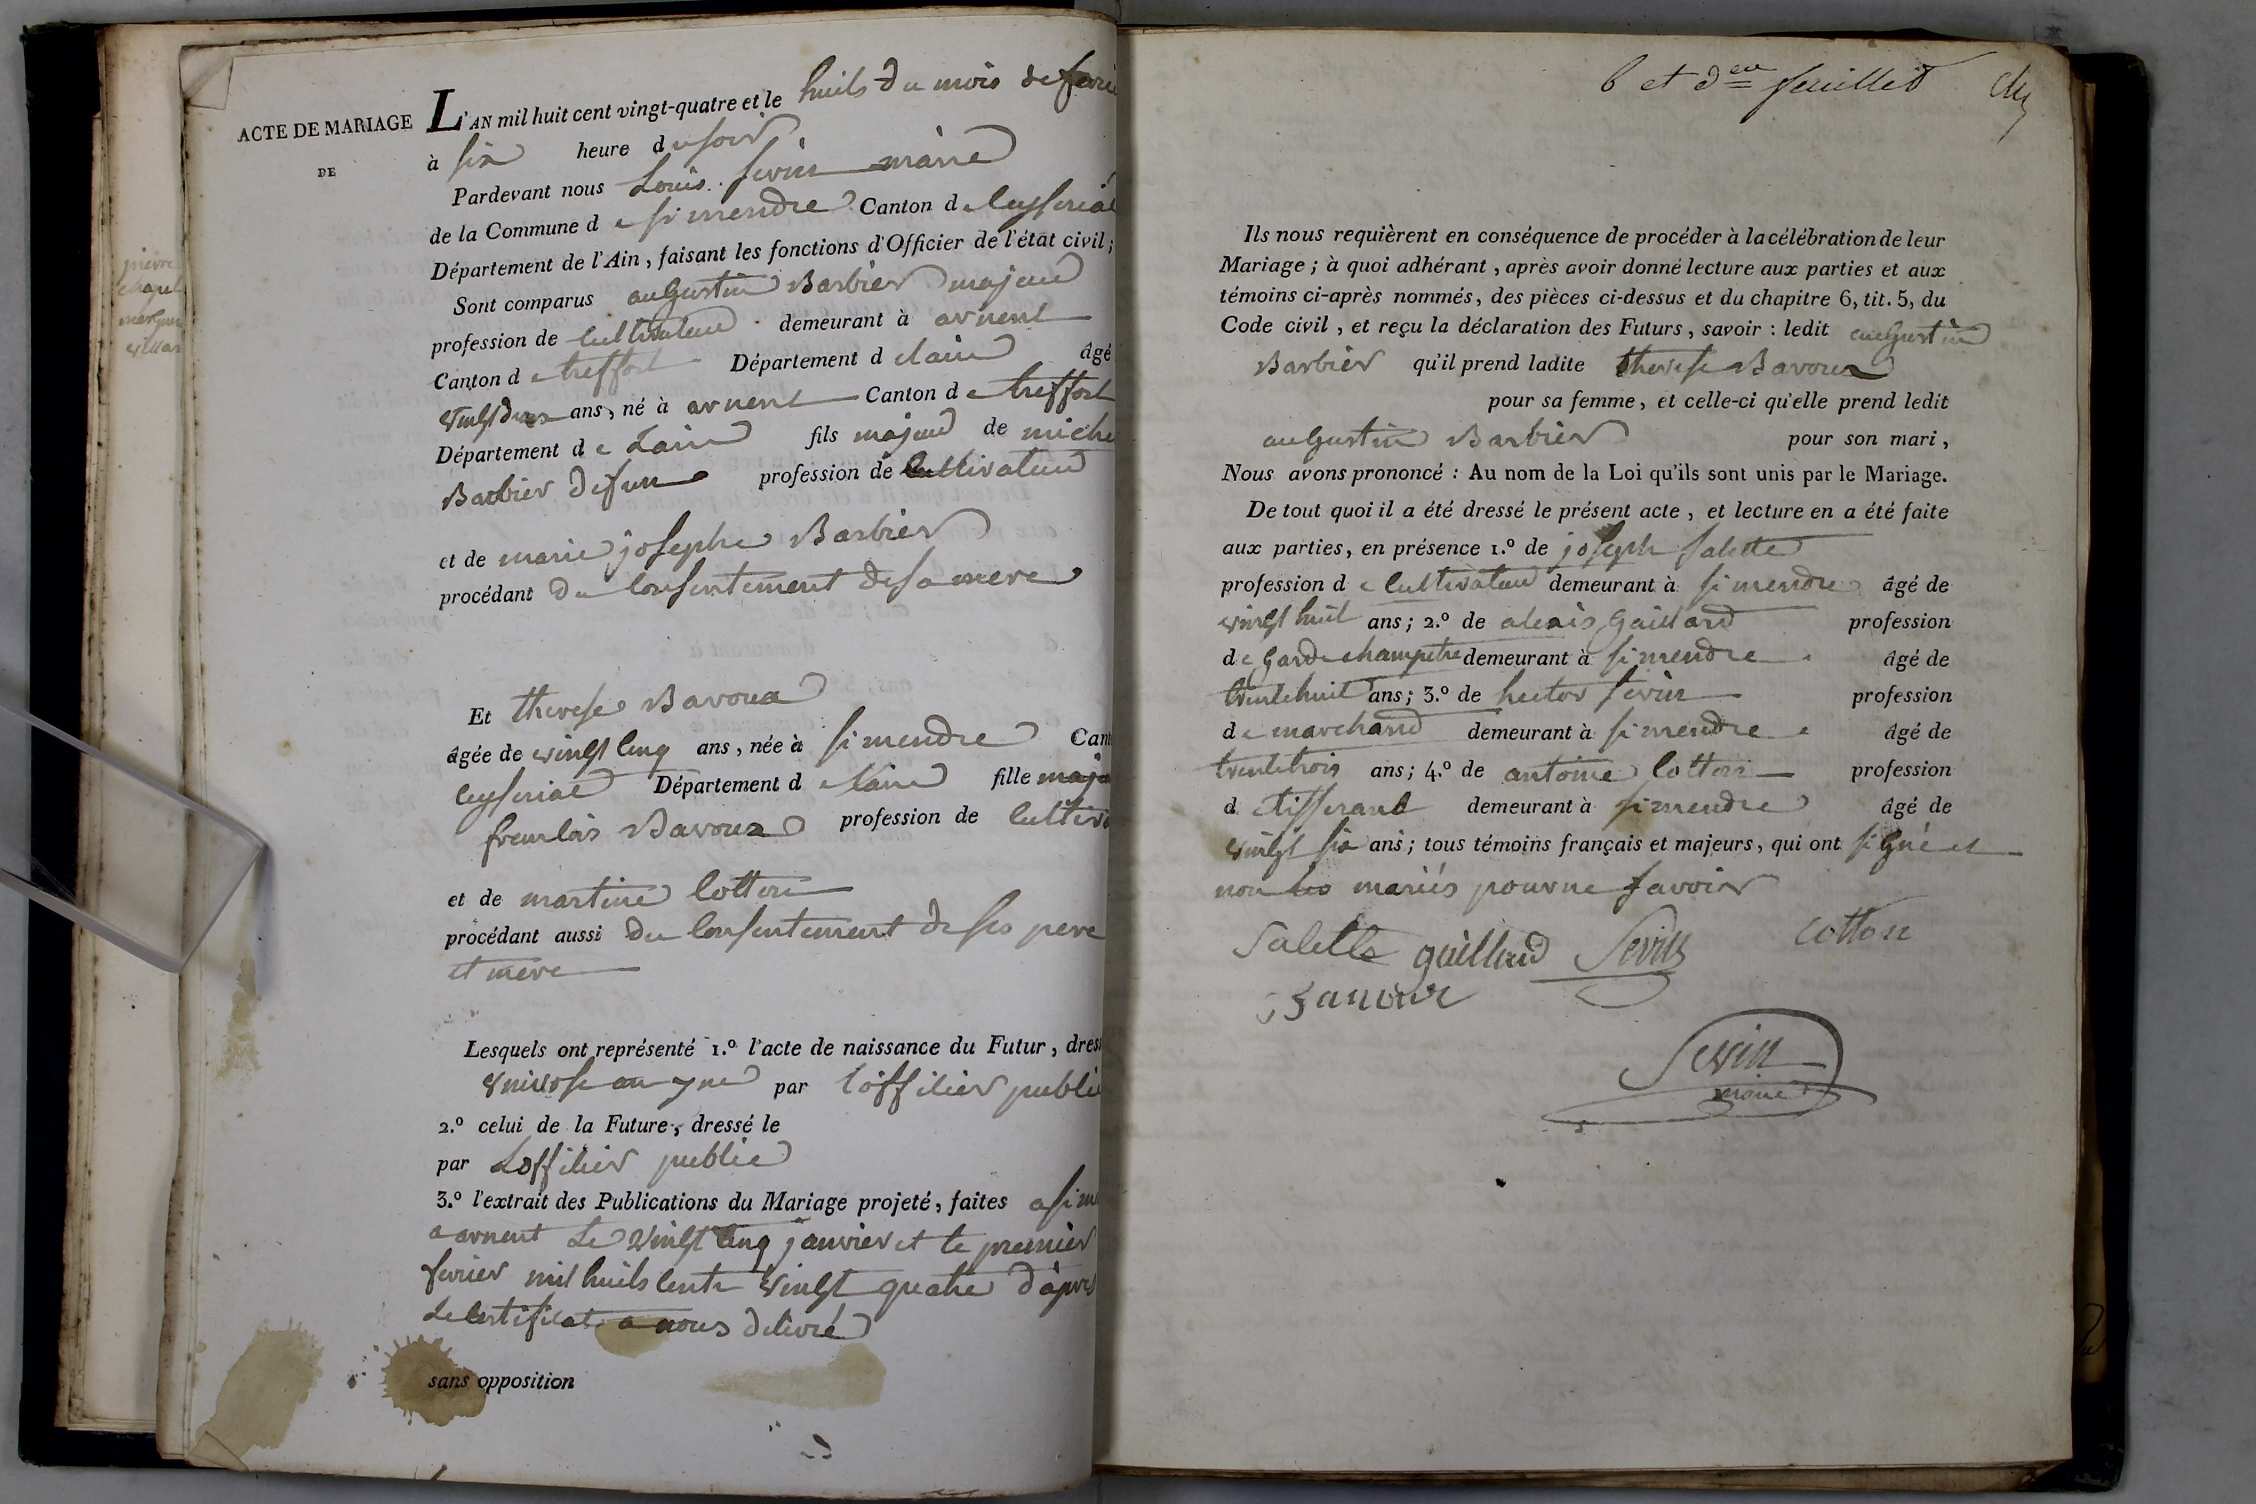 ACTE DE MARIAGE
DE
L'AN mil huit cent vingt-quatre et le huils du mois de fevrie
à six heure du soir
Pardevant nous Louis Sevin maire
de la Commune de simendre Canton de Ceyseriat
Département de l'Ain, faisant les fonctions d'Officier de l'état civil;
Sont comparus augustin Barbier majeur
profession de Cultivateur demeurant à arnent
Canton de treffort Département de lain âgé
vingt deux ans, né à arnent Canton de treffort
Département de Lain fils majeur de miche
Barbier defun profession de Cultivateur
et de marie josephe Barbier
procédant du Consentement de sa mere
Et therese Bavoux
âgée de vingt Cinq ans, née à simendre Cant
Ceyseriat Département de lain fille maje
francois Bavoux profession de Cultiva
et de martine Cotton
procédant aussi du Consentement de ses pere
et mere
Lesquels ont représenté 1.º l'acte de naissance du Futur, dress
par l'officier public
2.º celui de la Future, dressé le
par Lofficier public
3.º l'extrait des Publications du Mariage projeté, faites a sime
a arnent Le vingt Cinq janvier et le premier
fevrier mil huils Cents vingt quatre d'apres
Le Certificat a nous delivré
sans opposition
pierre
chapel
marguer
villar
6 et d.er feuillet
Ils nous requièrent en conséquence de procéder à la célébration de leur
Mariage; à quoi adhérant, après avoir donné lecture aux parties et aux
témoins ci-après nommés, des pièces ci-dessus et du chapitre 6, tit. 5, du
Code civil, et reçu la déclaration des Futurs, savoir: ledit augustin
Barbier qu'il prend ladite therese Bavoux
pour sa femme, et celle-ci qu'elle prend ledit
augustin Barbier pour son mari,
Nous avons prononcé: Au nom de la Loi qu'ils sont unis par le Mariage.
De tout quoi il a été dressé le présent acte, et lecture en a été faite
aux parties, en présence 1.º de joseph Salette
profession de Cultivateur demeurant à simendre âgé de
vingt huit ans; 2.º de alexis Gaillard profession
de Garde champetre demeurant à simendre âgé de
trente huit ans; 3.º de hector Sevin profession
de marchand demeurant à simendre âgé de
trente trois ans; 4.º de antoine Cotton profession
de tisserant demeurant à simendre âgé de
vingt six ans; tous témoins français et majeurs, qui ont signé et
non les mariés pour ne savoir
Salette gaillard Sevin Cotton
Sevin
maire